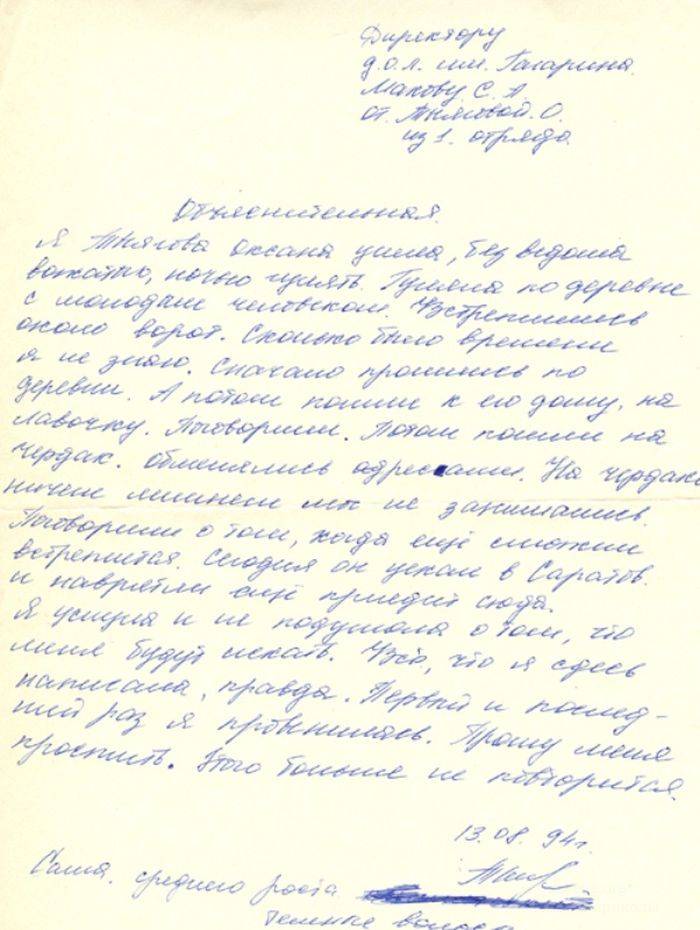 Директору
д.о.л. им. Гагарина
Макову С. А.
от Тняговой. О.
из 1. отряда.
Объяснительная.
Я Тнягова Оксана ушла, без ведома
вожатых, ночью гулять. Гуляла по деревне
с молодым человеком. Встретились
около ворот. Сколько было времени
я не знаю. Сначало прошлись по
деревни. А потом пошли к его дому, на
лавочку. Поговорили. Потом пошли на
чердак. Обменялись адресами. На чердаке
ничем лишнем мы не занимались.
Поговорили о том, когда ещё сможем
встретится. Сегодня он уехал в Саратов.
и наврятли ещё приедит сюда.
Я ушла и не подумала о том, что
меня будут искать. Всё, что я сдесь
написала, правда. Первый и послед-
ний раз я провинилась. Прошу меня
простить. Этого больше не повторится.
13.08.94г.
Саша. среднего роста
темные волосы